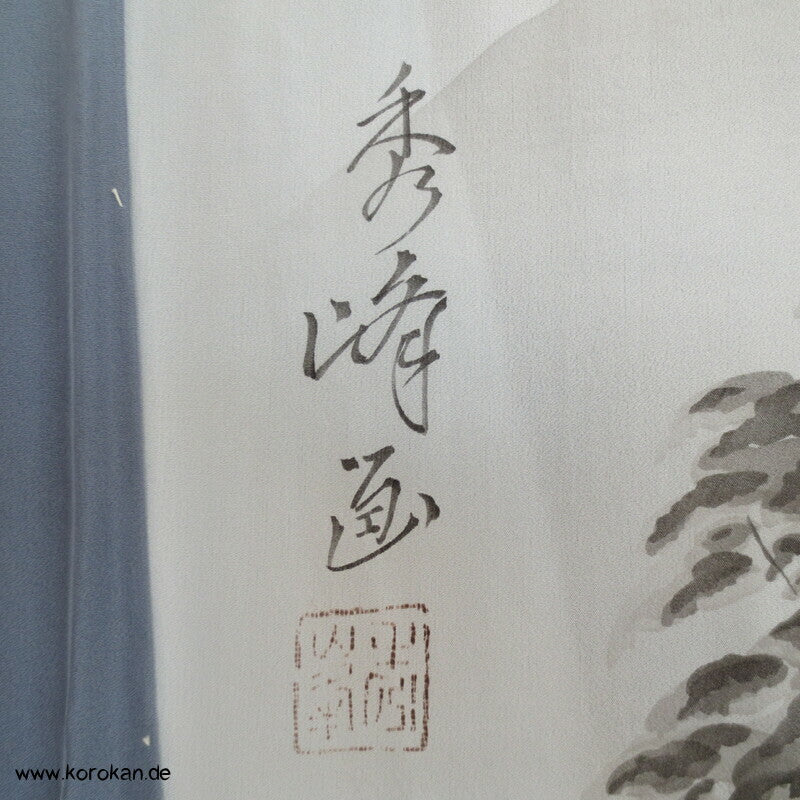 秀峰画
www.korokan.de